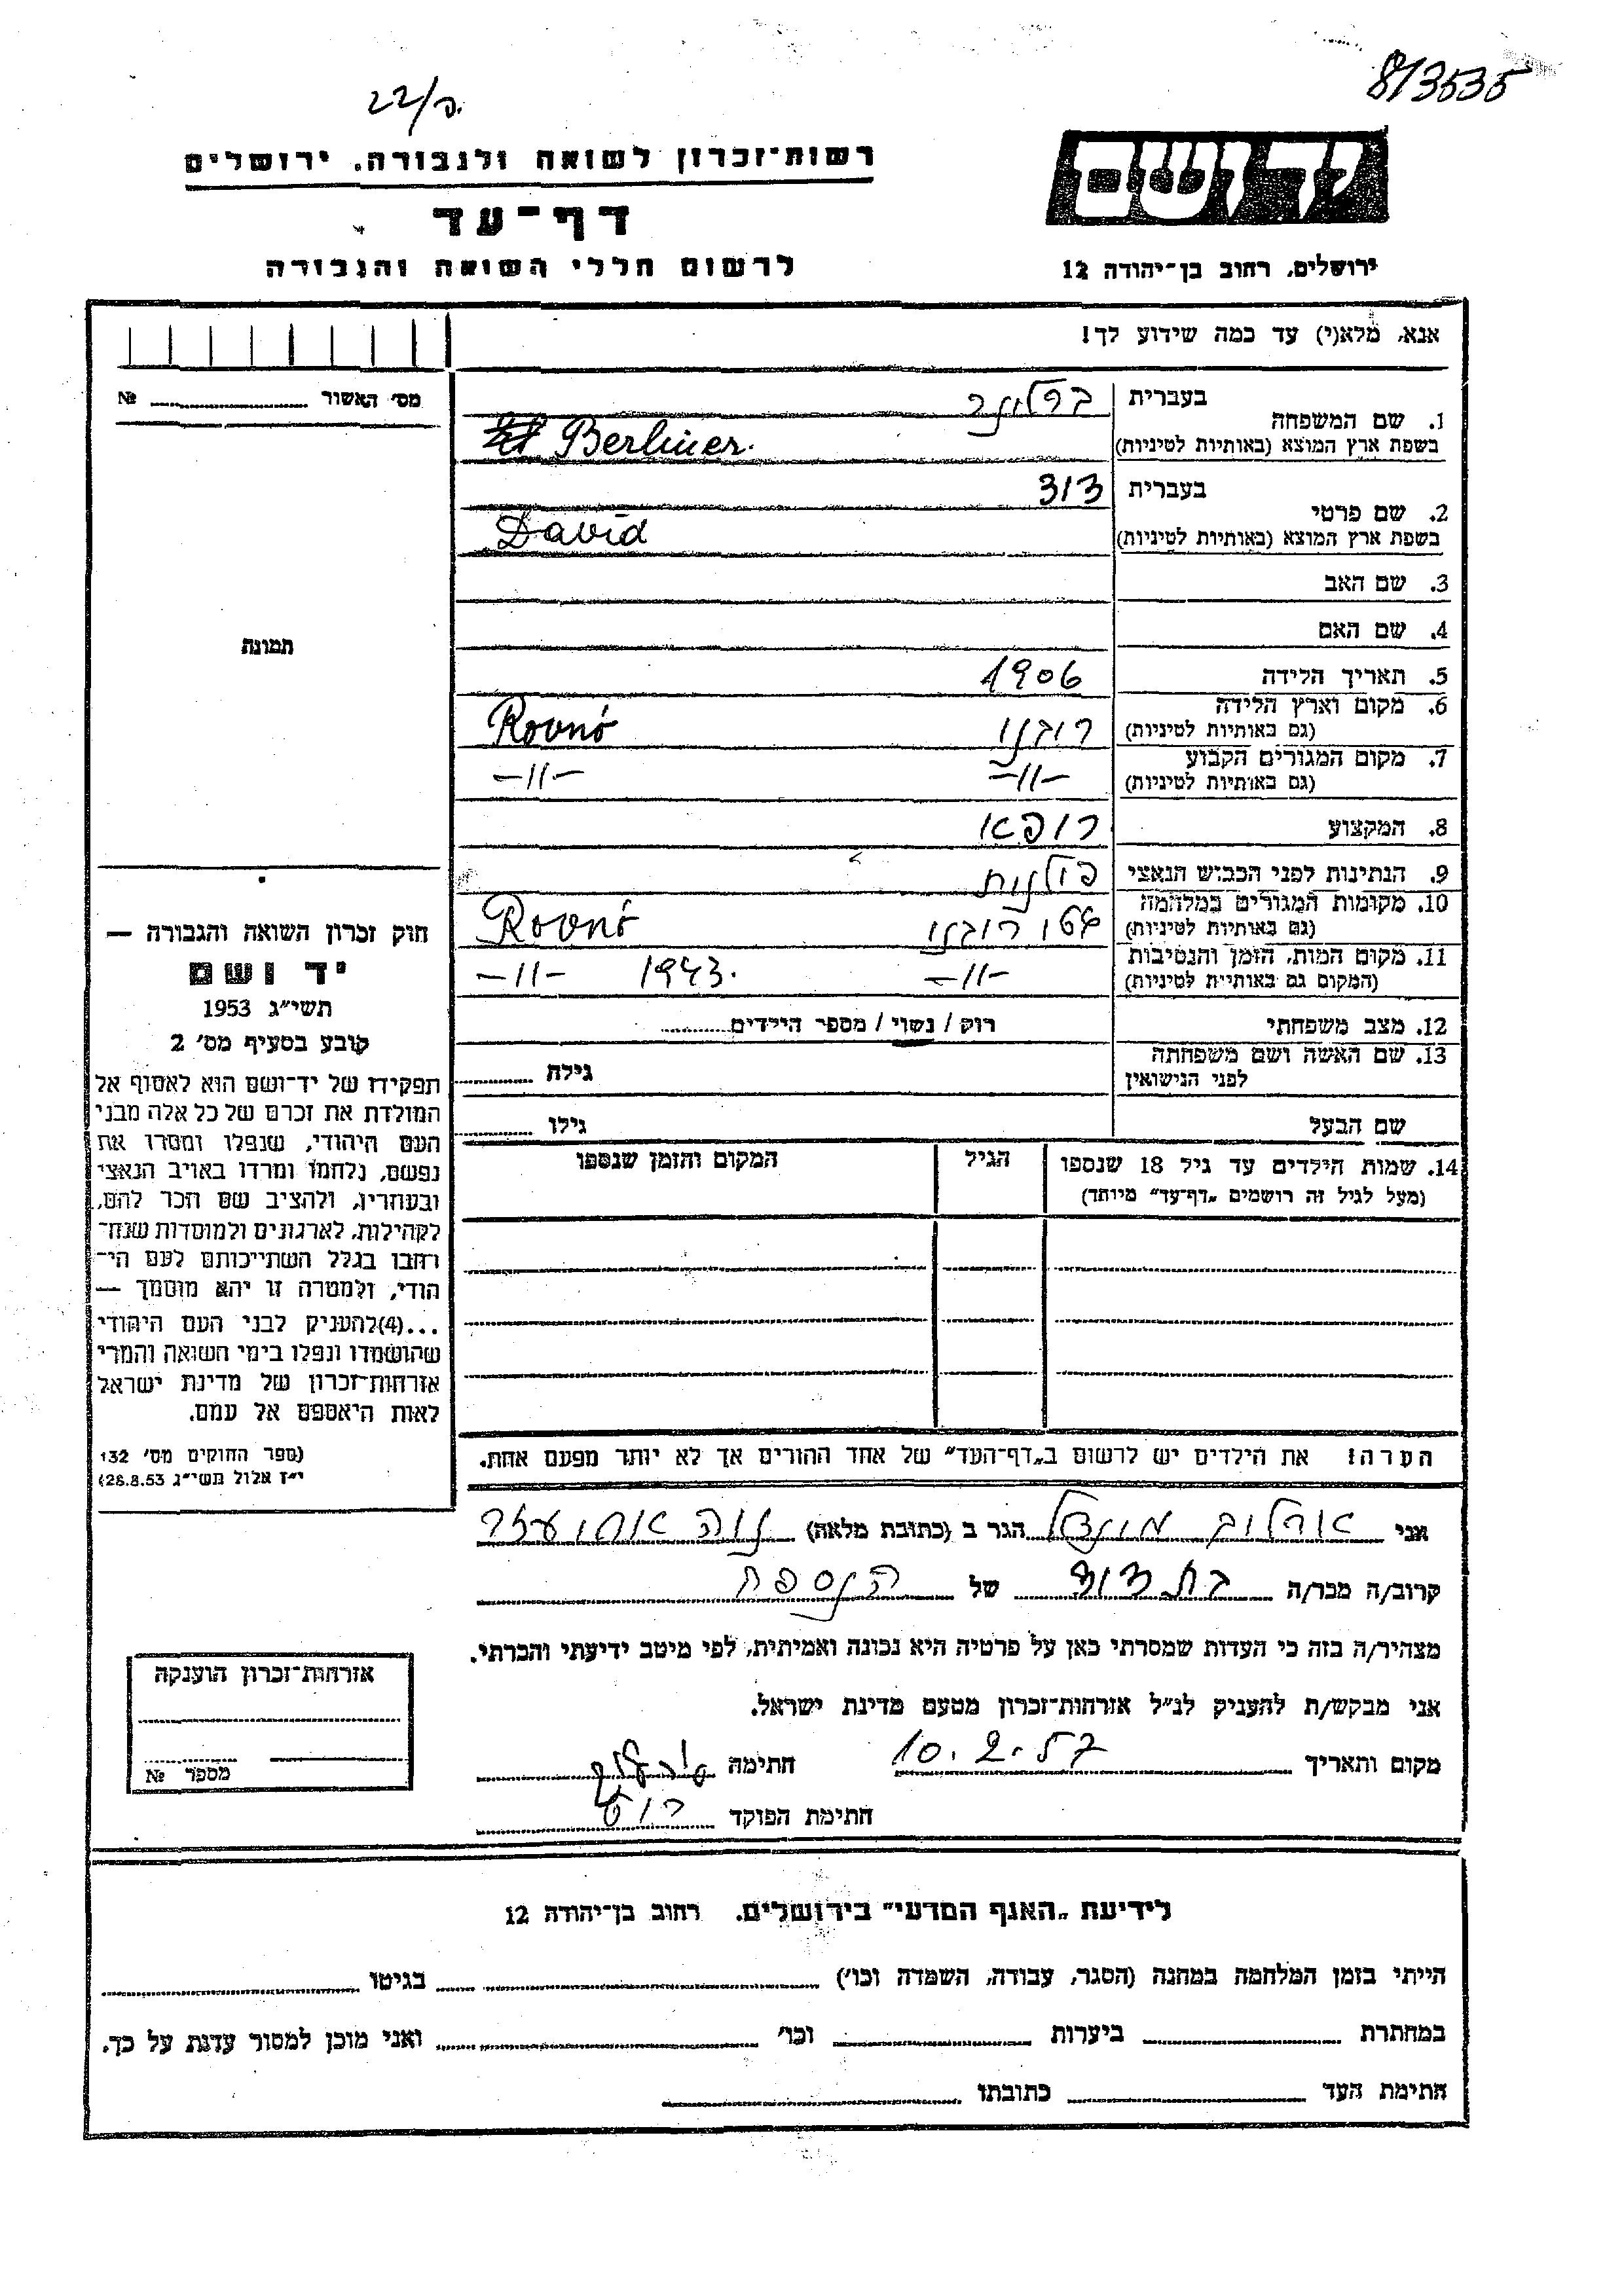 813535
22/פ.
יד ושם
רשות־זכרון לשואה ולגבורה, ירושלים
דף־עד
לרשום חללי השואה והגבורה
ירושלים, רחוב בן־יהודה 12
אנא, מלא(י) עד כמה שידוע לך!
מס' האשור № ............
בעברית ברלינר
1. שם המשפחה
בשפת ארץ המוצא (באותיות לטיניות) Berliner.
בעברית דוד
2. שם פרטי
בשפת ארץ המוצא (באותיות לטיניות) David
3. שם האב
4. שם האם
תמונה
5. תאריך הלידה 1906
6. מקום וארץ הלידה
(גם באותיות לטיניות) רובנו Rovno
7. מקום המגורים הקבוע
(גם באותיות לטיניות) —"— —"—
8. המקצוע רופא
9. הנתינות לפני הכבוש הנאצי פולנית
10. מקומות המגורים במלחמה
(גם באותיות לטיניות) גטו רובנו Rovno
11. מקום המות, הזמן והנסיבות
(המקום גם באותיות לטיניות) —"— 1943. —"—
12. מצב משפחתי רווק / נשוי / מספר הילדים............
13. שם האשה ושם משפחתה
לפני הנישואין גילה ............
שם הבעל גילו ............
חוק זכרון השואה והגבורה —
יד ושם
תשי"ג 1953
קובע בסעיף מס' 2
תפקידו של יד־ושם הוא לאסוף אל
המולדת את זכרם של כל אלה מבני
העם היהודי, שנפלו ומסרו את
נפשם, נלחמו ומרדו באויב הנאצי
ובעוזריו, ולהציב שם וזכר להם,
לקהילות, לארגונים ולמוסדות שנח־
רבו בגלל השתייכותם לעם הי־
הודי, ולמטרה זו יהא מוסמך —
...(4)להעניק לבני העם היהודי
שהושמדו ונפלו בימי השואה והמרי
אזרחות־זכרון של מדינת ישראל
לאות היאספם אל עמם.
(ספר החוקים מס' 132
י"ז אלול תשי"ג 28.8.53)
14. שמות הילדים עד גיל 18 שנספו
(מעל לגיל זה רושמים „דף־עד" מיוחד)
הגיל
המקום והזמן שנספו
הערה! את הילדים יש לרשום ב„דף־העד" של אחד ההורים אך לא יותר מפעם אחת.
אני אורלוב הגר ב (כתובת מלאה) נוה אחיעזר
קרוב/ה מכר/ה בת דוד של הנספה
מצהיר/ה בזה כי העדות שמסרתי כאן על פרטיה היא נכונה ואמיתית, לפי מיטב ידיעתי והכרתי.
אני מבקש/ת להעניק לנ"ל אזרחות־זכרון מטעם מדינת ישראל.
מקום ותאריך 10.2.57 חתימה
חתימת הפוקד
אזרחות־זכרון הוענקה
מספר №
לידיעת „האגף המדעי" בירושלים, רחוב בן־יהודה 12
הייתי בזמן המלחמה במחנה (הסגר, עבודה, השמדה וכו') ............ בגיטו ............
במחתרת ............ ביערות ............ וכו' ............ ואני מוכן למסור עדות על כך.
חתימת העד ............ כתובתו ............